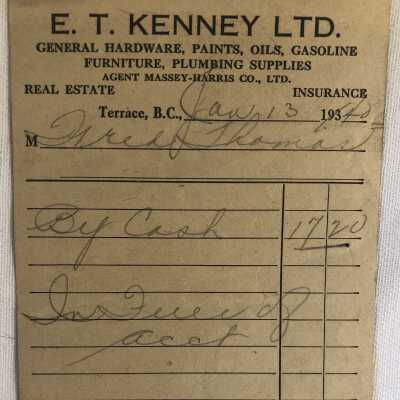 E. T. KENNEY LTD.
GENERAL HARDWARE, PAINTS, OILS, GASOLINE
FURNITURE, PLUMBING SUPPLIES
AGENT MASSEY-HARRIS CO., LTD.
REAL ESTATE INSURANCE
Terrace, B.C., Jan 13 193 40
M Fred Thomas
By Cash 17 20
In Full of
acct